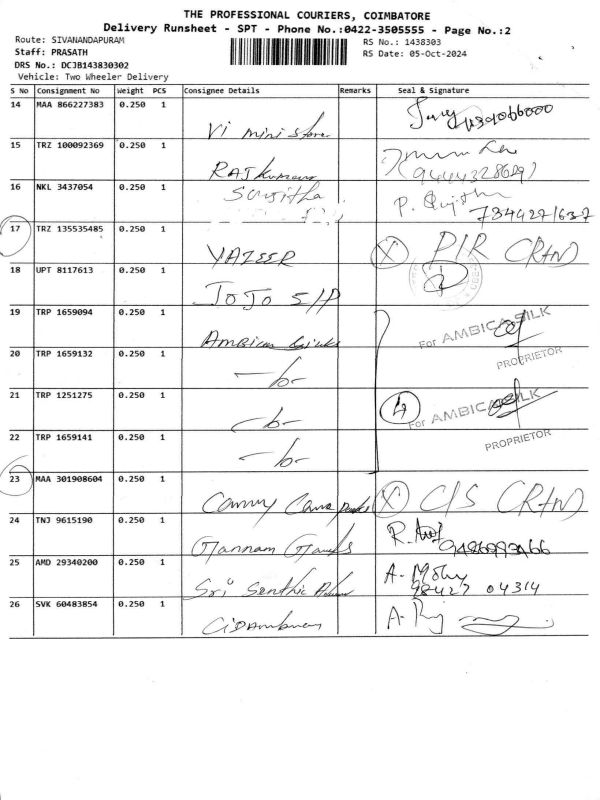 THE PROFESSIONAL COURIERS, COIMBATORE
Delivery Runsheet - SPT - Phone No.:0422-3505555 - Page No.:2
Route: SIVANANDAPURAM
RS No.: 1438303
Staff: PRASATH
RS Date: 05-Oct-2024
DRS No.: DCJB143830302
Vehicle: Two Wheeler Delivery
S No Consignment No Weight PCS Consignee Details Remarks Seal & Signature
14 MAA 866227383 0.250 1 Vi mini store
15 TRZ 100092369 0.250 1 RAJkumar
16 NKL 3437054 0.250 1 Sujitha P. Sujitha 7344271637
17 TRZ 135535485 0.250 1 YAZEER X PIR
18 UPT 8117613 0.250 1 JOJO S/P
19 TRP 1659094 0.250 1 For AMBICA SILK
PROPRIETOR
20 TRP 1659132 0.250 1
21 TRP 1251275 0.250 1 4 For AMBICA SILK
PROPRIETOR
22 TRP 1659141 0.250 1
23 MAA 301908604 0.250 1 X C/S
24 TNJ 9615190 0.250 1
25 AMD 29340200 0.250 1 Sri Senthil A. 98427 04314
26 SVK 60483854 0.250 1 A.